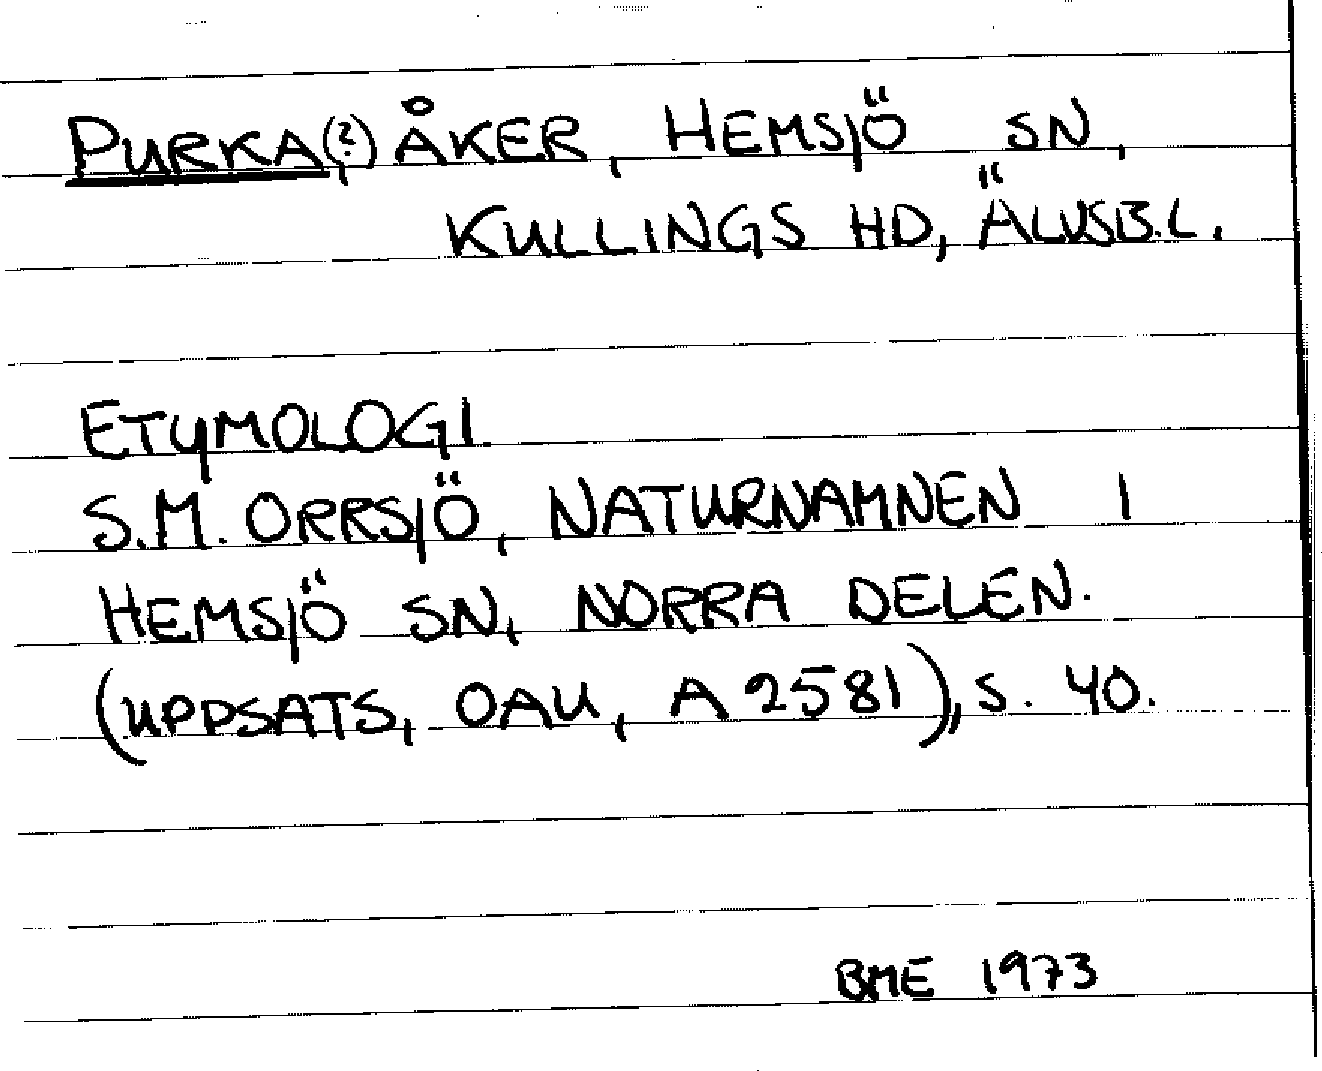 PURKA(?) ÅKER, HEMSJÖ SN,
KULLINGS HD, ÄLVSB.L.
ETYMOLOGI.
S.M. ORRSJÖ, NATURNAMNEN I
HEMSJÖ SN, NORRA DELEN.
(UPPSATS, OAU, A 2581), S. 40.
BME 1973